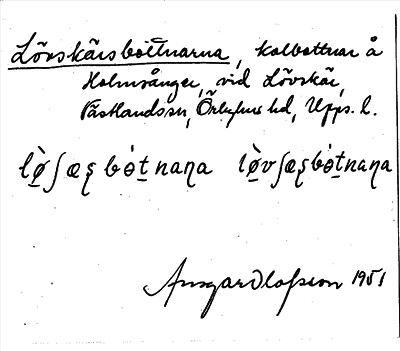 Lövskärsbottnarna, kolbottnar å
Holmsånger, vid Lövskär,
Västlandssn, Örbyhus hd, Upps. l.
lø̀ʃæʂbòtnaɳa løvʃæʂbòtnaɳa
Ansgar Olofsson 1951